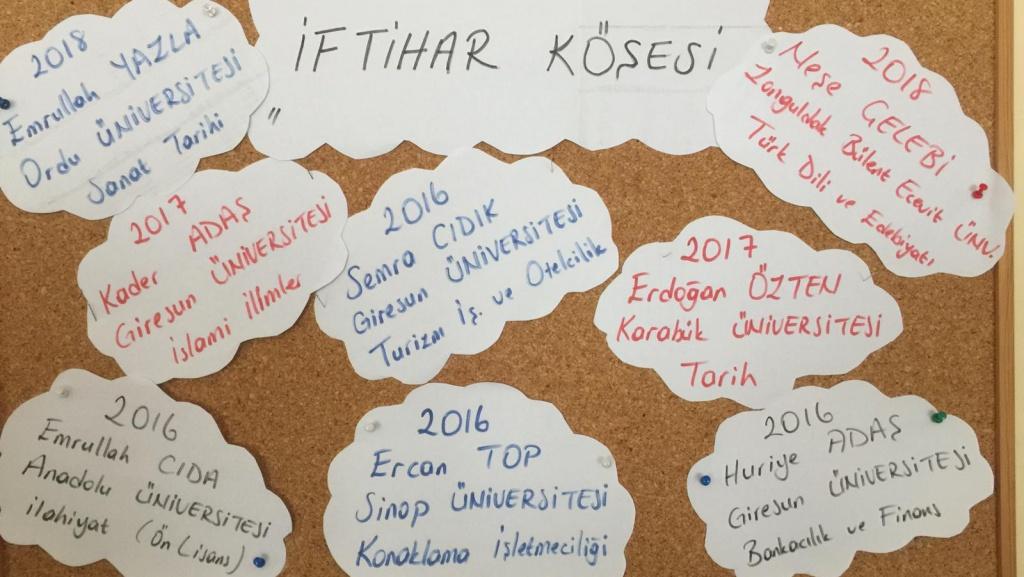 İFTİHAR KÖŞESİ
"
2018
Emrullah YAZLA
Ordu ÜNİVERSİTESİ
Sanat Tarihi
2018
Neşe GELEBİ
Zonguldak Bülent Ecevit ÜNV.
Türk Dili ve Edebiyatı
2017
Kader ADAŞ
Giresun ÜNİVERSİTESİ
islami illmler
2016
Semra CIDIK
Giresun ÜNİVERSİTESİ
Turizm İş. ve Otelcilik
2017
Erdoğan ÖZTEN
Karabük ÜNİVERSİTESİ
Tarih
2016
Emrullah CIDA
Anadolu ÜNİVERSİTESİ
ilahiyat (Ön Lisans)
2016
Ercan TOP
Sinop ÜNİVERSİTESİ
Konaklama işletmeciliği
2016
Huriye ADAŞ
Giresun ÜNİVERSİTESİ
Bankacılık ve Finans